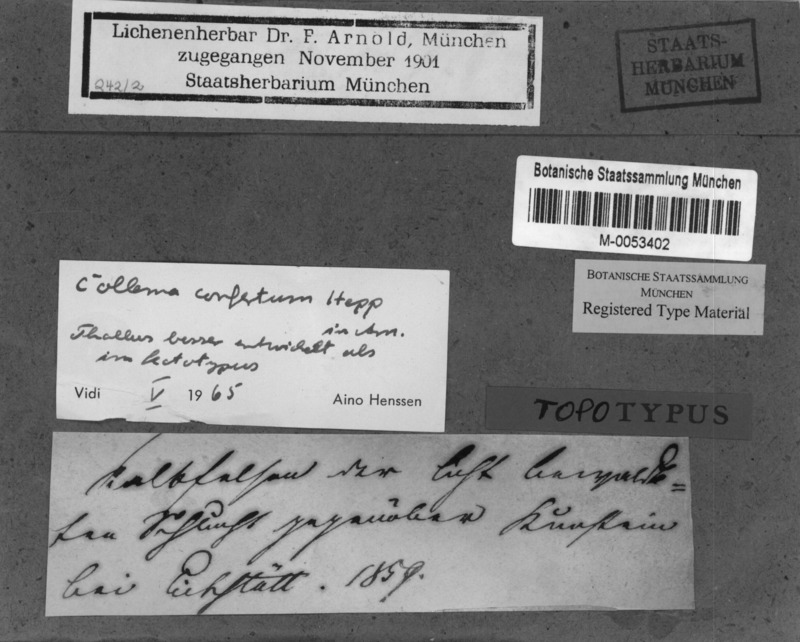 Lichenenherbar Dr. F. Arnold, München
zugegangen November 1901
Staatsherbarium München
242/2
STAATS-
HERBARIUM
MÜNCHEN
Botanische Staatssammlung München
M-0053402
BOTANISCHE STAATSSAMMLUNG
MÜNCHEN
Registered Type Material
Collema confertum Hepp
in Arn.
Thallus besser entwickelt als
im Lectotypus
Vidi V 1965 Aino Henssen
TOPOTYPUS
Kalkfelsen der licht bewalde=
ten Schlucht gegenüber Kunstein
bei Eichstätt. 1859.